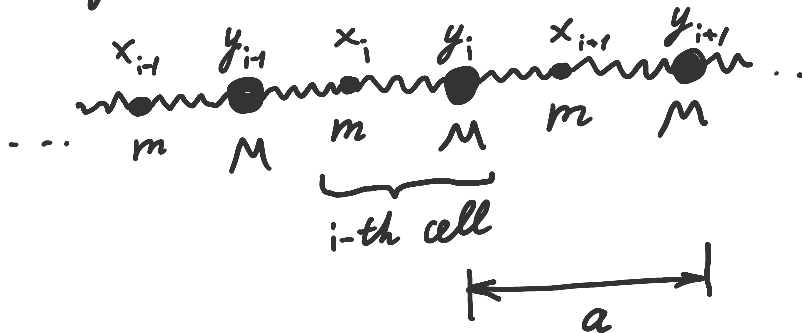 x_{i-1} y_{i-1} x_i y_i x_{i+1} y_{i+1}
... m M m M m M ...
i-th cell
a